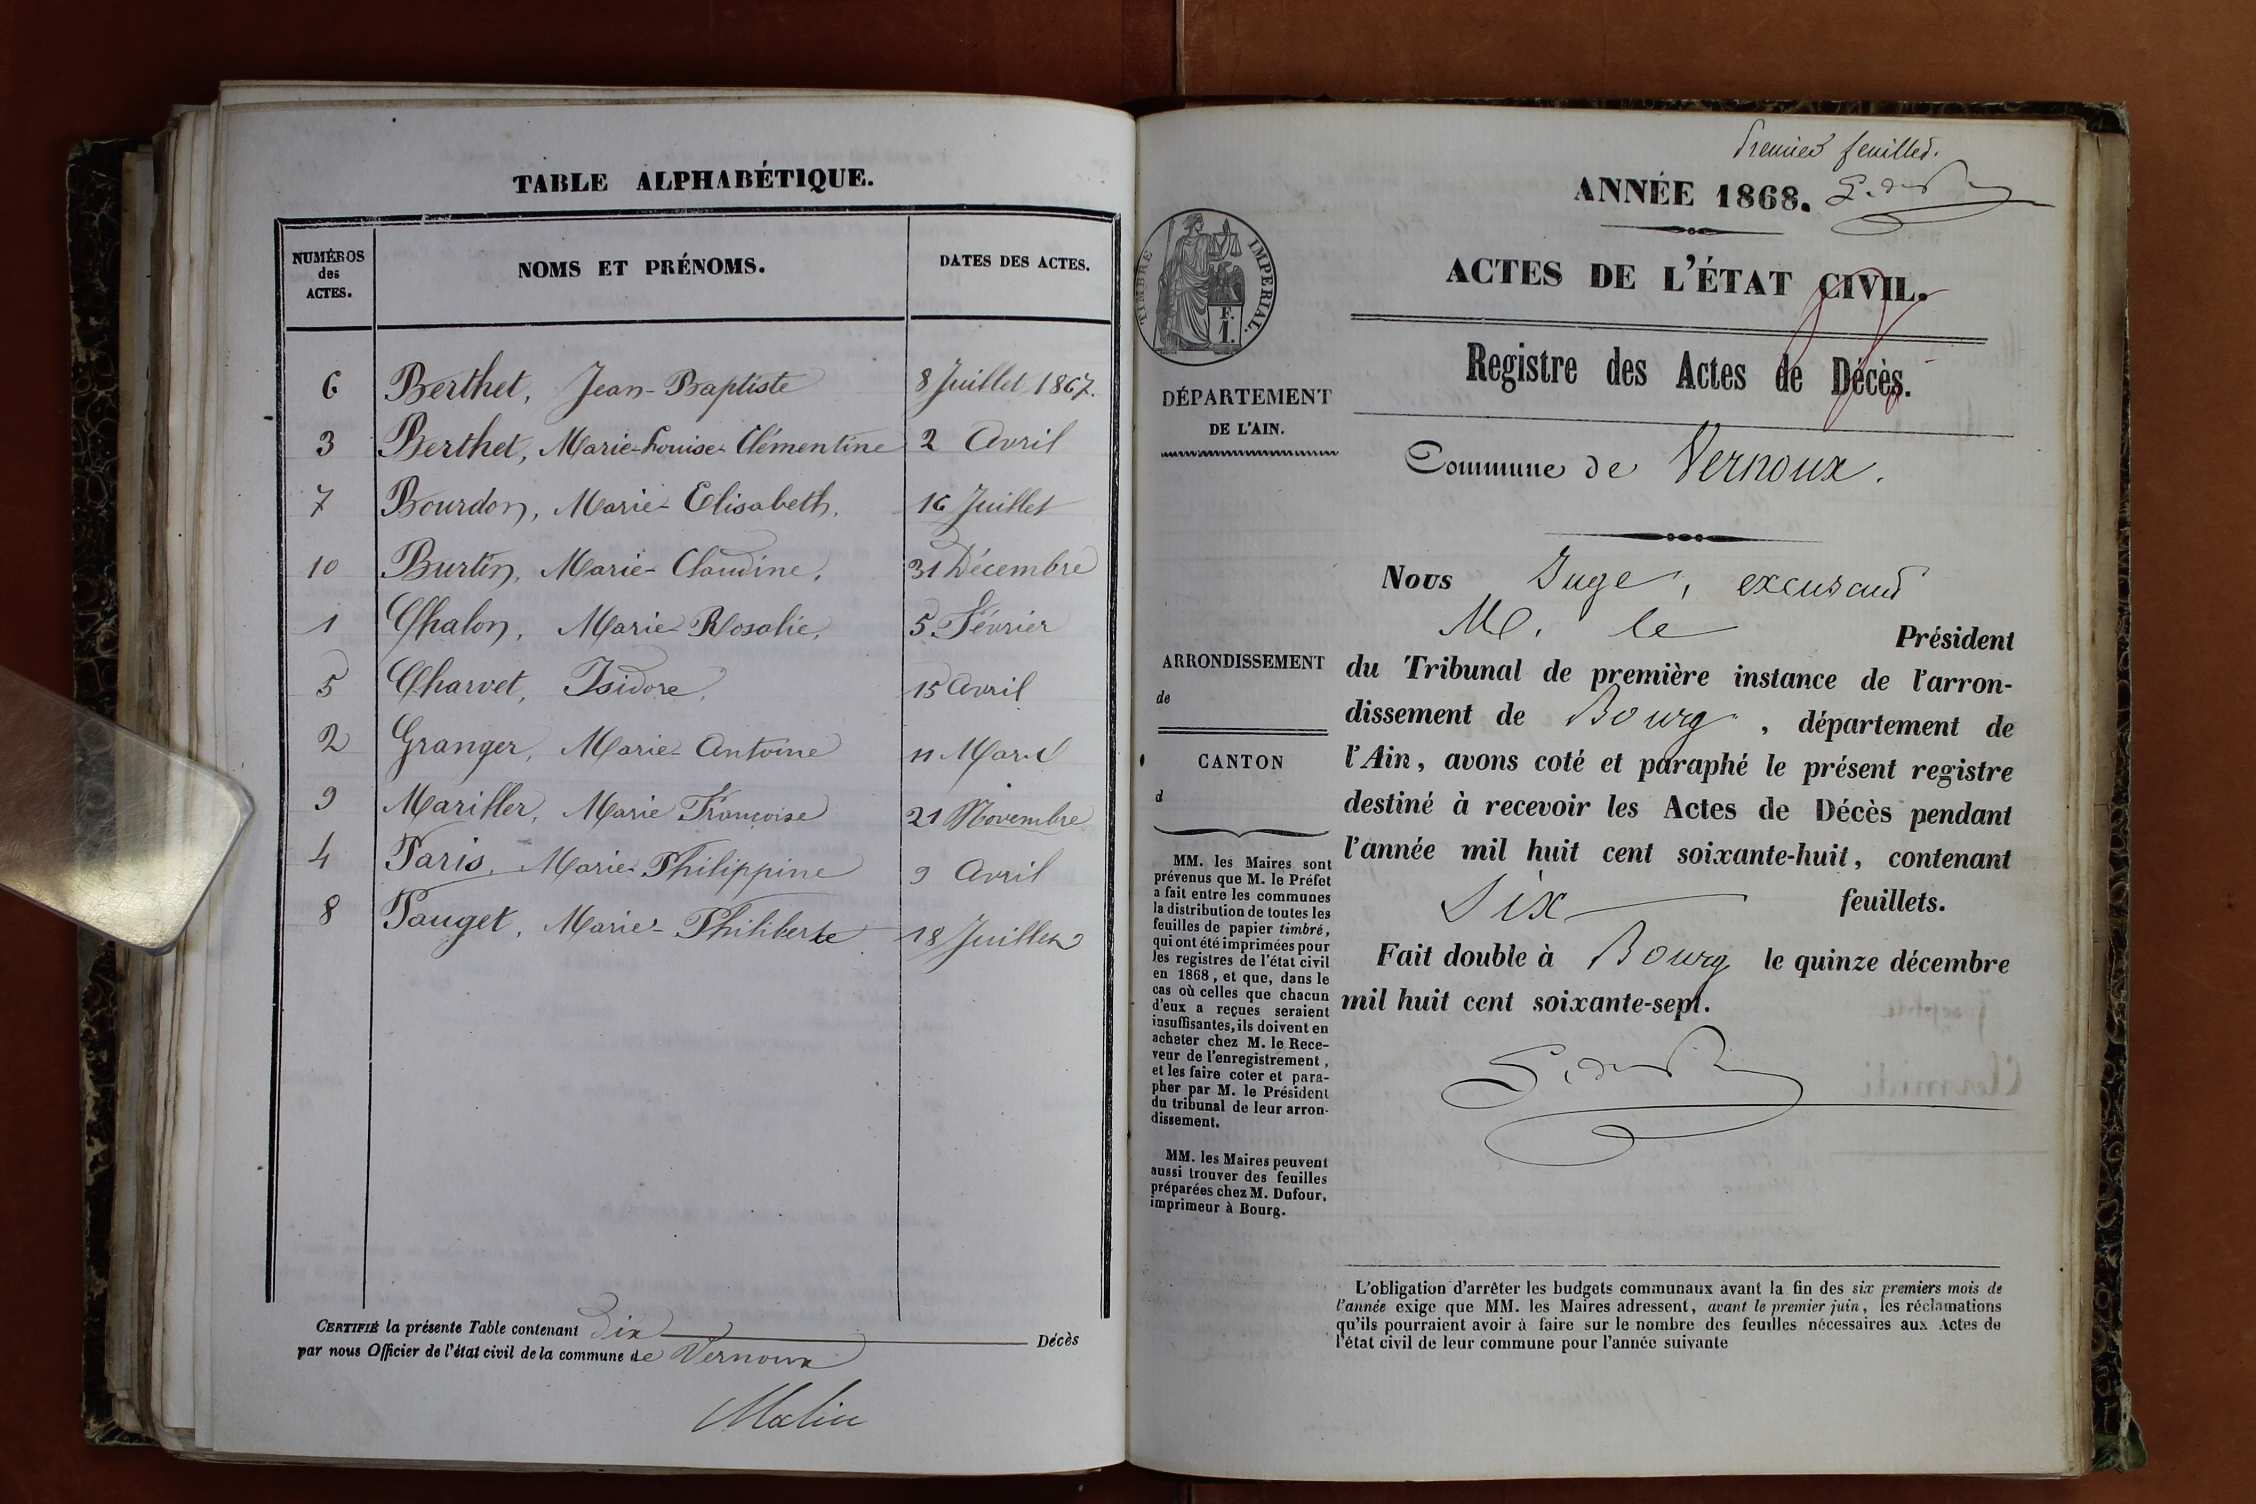 TABLE ALPHABÉTIQUE.
NUMÉROS des ACTES. NOMS ET PRÉNOMS. DATES DES ACTES.
6 Berthet, Jean-Baptiste 8 Juillet 1867.
3 Berthet, Marie-Louise-Clémentine 2 Avril
7 Bourdon, Marie-Elisabeth. 16 Juillet
10 Burtin, Marie-Claudine. 31 Décembre
1 Chalon, Marie-Rosalie. 5 Février
5 Charvet, Isidore. 15 Avril
2 Granger, Marie-Antoine 11 Mars
9 Mariller, Marie Françoise 21 Novembre
4 Paris, Marie-Philippine 9 Avril
8 Pauget, Marie-Philiberte 18 Juillet
CERTIFIÉ la présente Table contenant Dix Décès
par nous Officier de l'état civil de la commune de Vernoux
Premier feuillet.
ANNÉE 1868.
ACTES DE L'ÉTAT CIVIL.
TIMBRE IMPÉRIAL.
F. 1.
Registre des Actes de Décès.
DÉPARTEMENT
DE L'AIN.
Commune de Vernoux.
Nous Juge, excusant
M. le Président
du Tribunal de première instance de l'arron-
dissement de Bourg, département de
l'Ain, avons coté et paraphé le présent registre
destiné à recevoir les Actes de Décès pendant
l'année mil huit cent soixante-huit, contenant
Six feuillets.
Fait double à Bourg le quinze décembre
mil huit cent soixante-sept.
ARRONDISSEMENT
de
CANTON
d
MM. les Maires sont
prévenus que M. le Préfet
a fait entre les communes
la distribution de toutes les
feuilles de papier timbré,
qui ont été imprimées pour
les registres de l'état civil
en 1868, et que, dans le
cas où celles que chacun
d'eux a reçues seraient
insuffisantes, ils doivent en
acheter chez M. le Rece-
veur de l'enregistrement,
et les faire coter et para-
pher par M. le Président
du tribunal de leur arron-
dissement.
MM. les Maires peuvent
aussi trouver des feuilles
préparées chez M. Dufour,
imprimeur à Bourg.
L'obligation d'arrêter les budgets communaux avant la fin des six premiers mois de
l'année exige que MM. les Maires adressent, avant le premier juin, les réclamations
qu'ils pourraient avoir à faire sur le nombre des feuilles nécessaires aux Actes de
l'état civil de leur commune pour l'année suivante